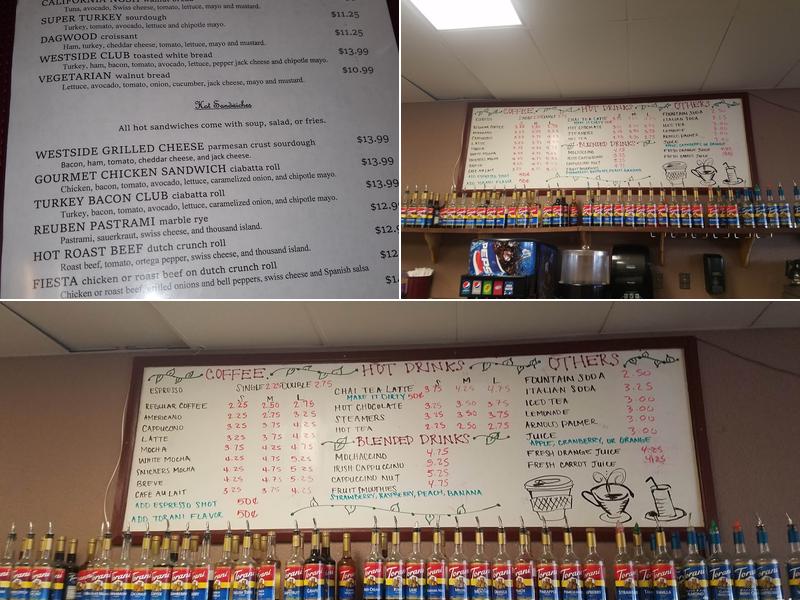 CALIFORNIA
Tuna, avocado, Swiss cheese, tomato, lettuce, mayo and mustard.
SUPER TURKEY sourdough $11.25
Turkey, tomato, avocado, lettuce and chipotle mayo.
DAGWOOD croissant $11.25
Ham, turkey, cheddar cheese, tomato, lettuce, mayo and mustard.
WESTSIDE CLUB toasted white bread $13.99
Turkey, ham, bacon, tomato, avocado, lettuce, pepper jack cheese and chipotle mayo.
VEGETARIAN walnut bread $10.99
Lettuce, avocado, tomato, onion, cucumber, jack cheese, mayo and mustard.
Hot Sandwiches
All hot sandwiches come with soup, salad, or fries.
WESTSIDE GRILLED CHEESE parmesan crust sourdough $13.99
Bacon, ham, tomato, cheddar cheese, and jack cheese.
GOURMET CHICKEN SANDWICH ciabatta roll $13.99
Chicken, bacon, tomato, avocado, lettuce, caramelized onion, and chipotle mayo.
TURKEY BACON CLUB ciabatta roll $13.99
Turkey, bacon, tomato, avocado, lettuce, caramelized onion, and chipotle mayo.
REUBEN PASTRAMI marble rye $12.9
Pastrami, sauerkraut, swiss cheese, and thousand island.
HOT ROAST BEEF dutch crunch roll $12.
Roast beef, tomato, ortega pepper, swiss cheese, and thousand island.
FIESTA chicken or roast beef on dutch crunch roll $12
Chicken or roast beef, grilled onions and bell peppers, swiss cheese and Spanish salsa
COFFEE HOT DRINKS OTHERS
BLENDED DRINKS
pepsi
COFFEE
ESPRESSO SINGLE 2.25 DOUBLE 2.75
S M L
REGULAR COFFEE 2.25 2.50 2.75
AMERICANO 2.25 2.75 3.25
CAPPUCCINO 3.25 3.75 4.25
LATTE 3.25 3.75 4.25
MOCHA 3.75 4.25 4.75
WHITE MOCHA 4.25 4.75 5.25
SNICKERS MOCHA 4.25 4.75 5.25
BREVE 4.25 4.75 5.25
CAFE AU LAIT 3.25 3.75 4.25
ADD ESPRESSO SHOT 50¢
ADD TORANI FLAVOR 50¢
HOT DRINKS
S M L
CHAI TEA LATTE 3.75 4.25 4.75
MAKE IT DIRTY 50¢
HOT CHOCOLATE 3.25 3.50 3.75
STEAMERS 3.25 3.50 3.75
HOT TEA 2.25 2.50 2.75
BLENDED DRINKS
MOCHACCINO 4.75
IRISH CAPPUCCINO 5.25
CAPPUCCINO NUT 5.25
FRUIT SMOOTHIES 4.75
STRAWBERRY, RASPBERRY, PEACH, BANANA
OTHERS
FOUNTAIN SODA 2.50
ITALIAN SODA 3.25
ICED TEA 3.00
LEMONADE 3.00
ARNOLD PALMER 3.00
JUICE 3.00
APPLE, CRANBERRY, OR ORANGE
FRESH ORANGE JUICE 4.25
FRESH CARROT JUICE 4.25
Torani